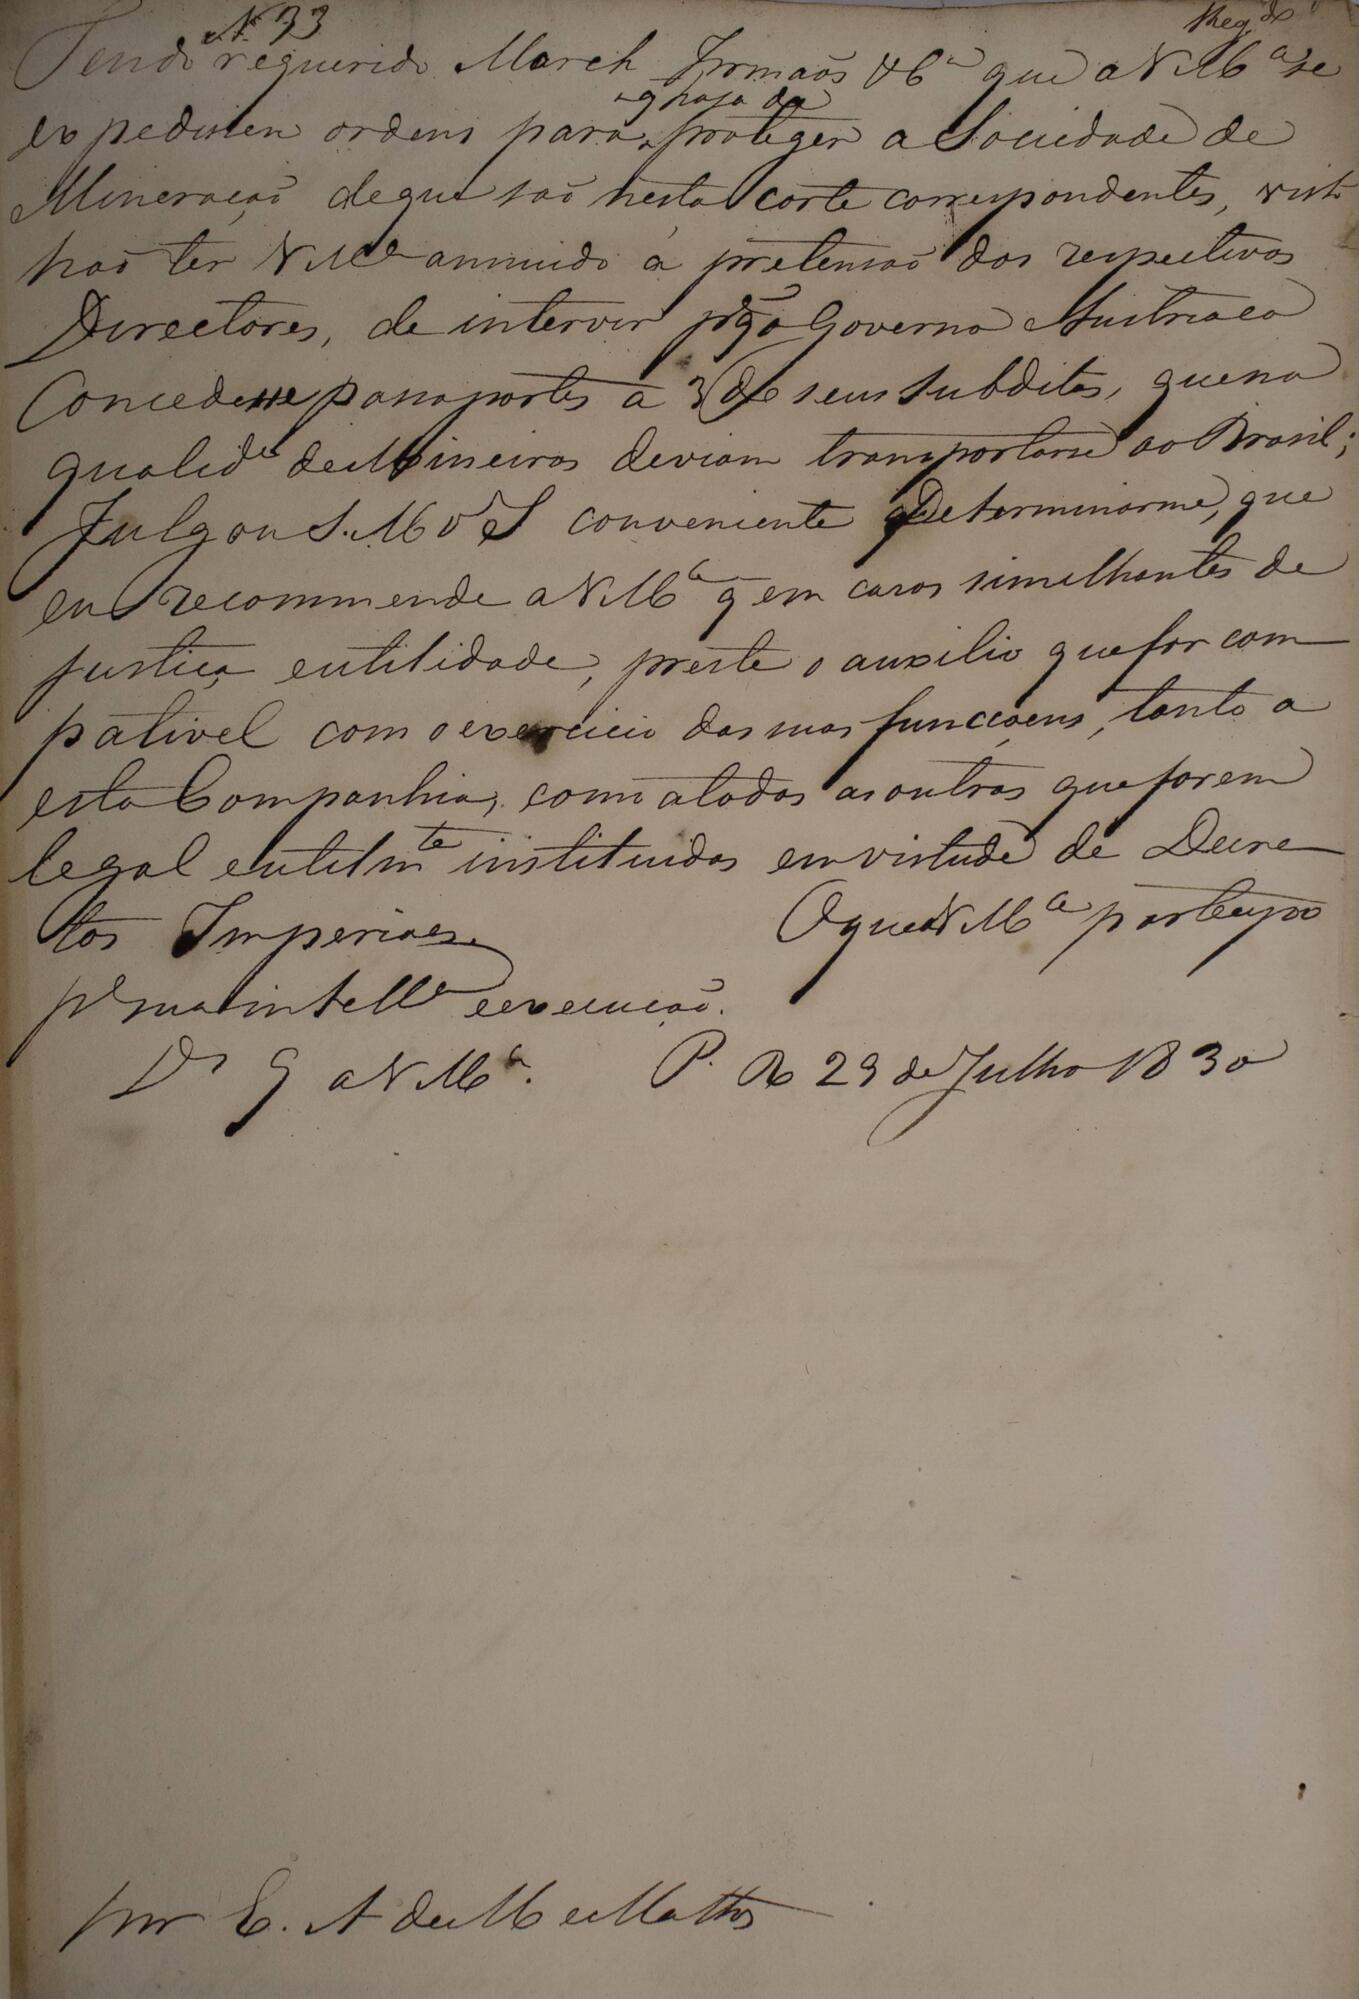 N. 33
Reg.do
Tendo requerido March Irmaõs & Ca que a V Mce se
expedissem ordens para a proteger a Sociedade de
Mineração de que saõ nesta Corte correspondentes, visto
naõ ter V Mce annuido á pretensaõ dos respectivos
Directores, de intervir pa q̃ o Governo Austriaco
Concedesse passaportes a 3 de seus Subditos, que na
qualide de Mineiros deviam transportarse ao Brasil;
Julgou S. M o I conveniente Determinarme, que
eu recommende a V Mce q̃ em casos similhantes de
justiça e utilidade, preste o auxilio que for com
pativel com o exercicio das suas funcçoens, tanto a
esta Companhia, como a todas as outras que forem
legal e utilmte instituidas em virtude de Decre
tos Imperiaes. O que a V Mce participo
pa sua intella e execuçaõ.
Ds G a V Mce. P. R 29 de Julho 1830
por E. A de M e Mattos